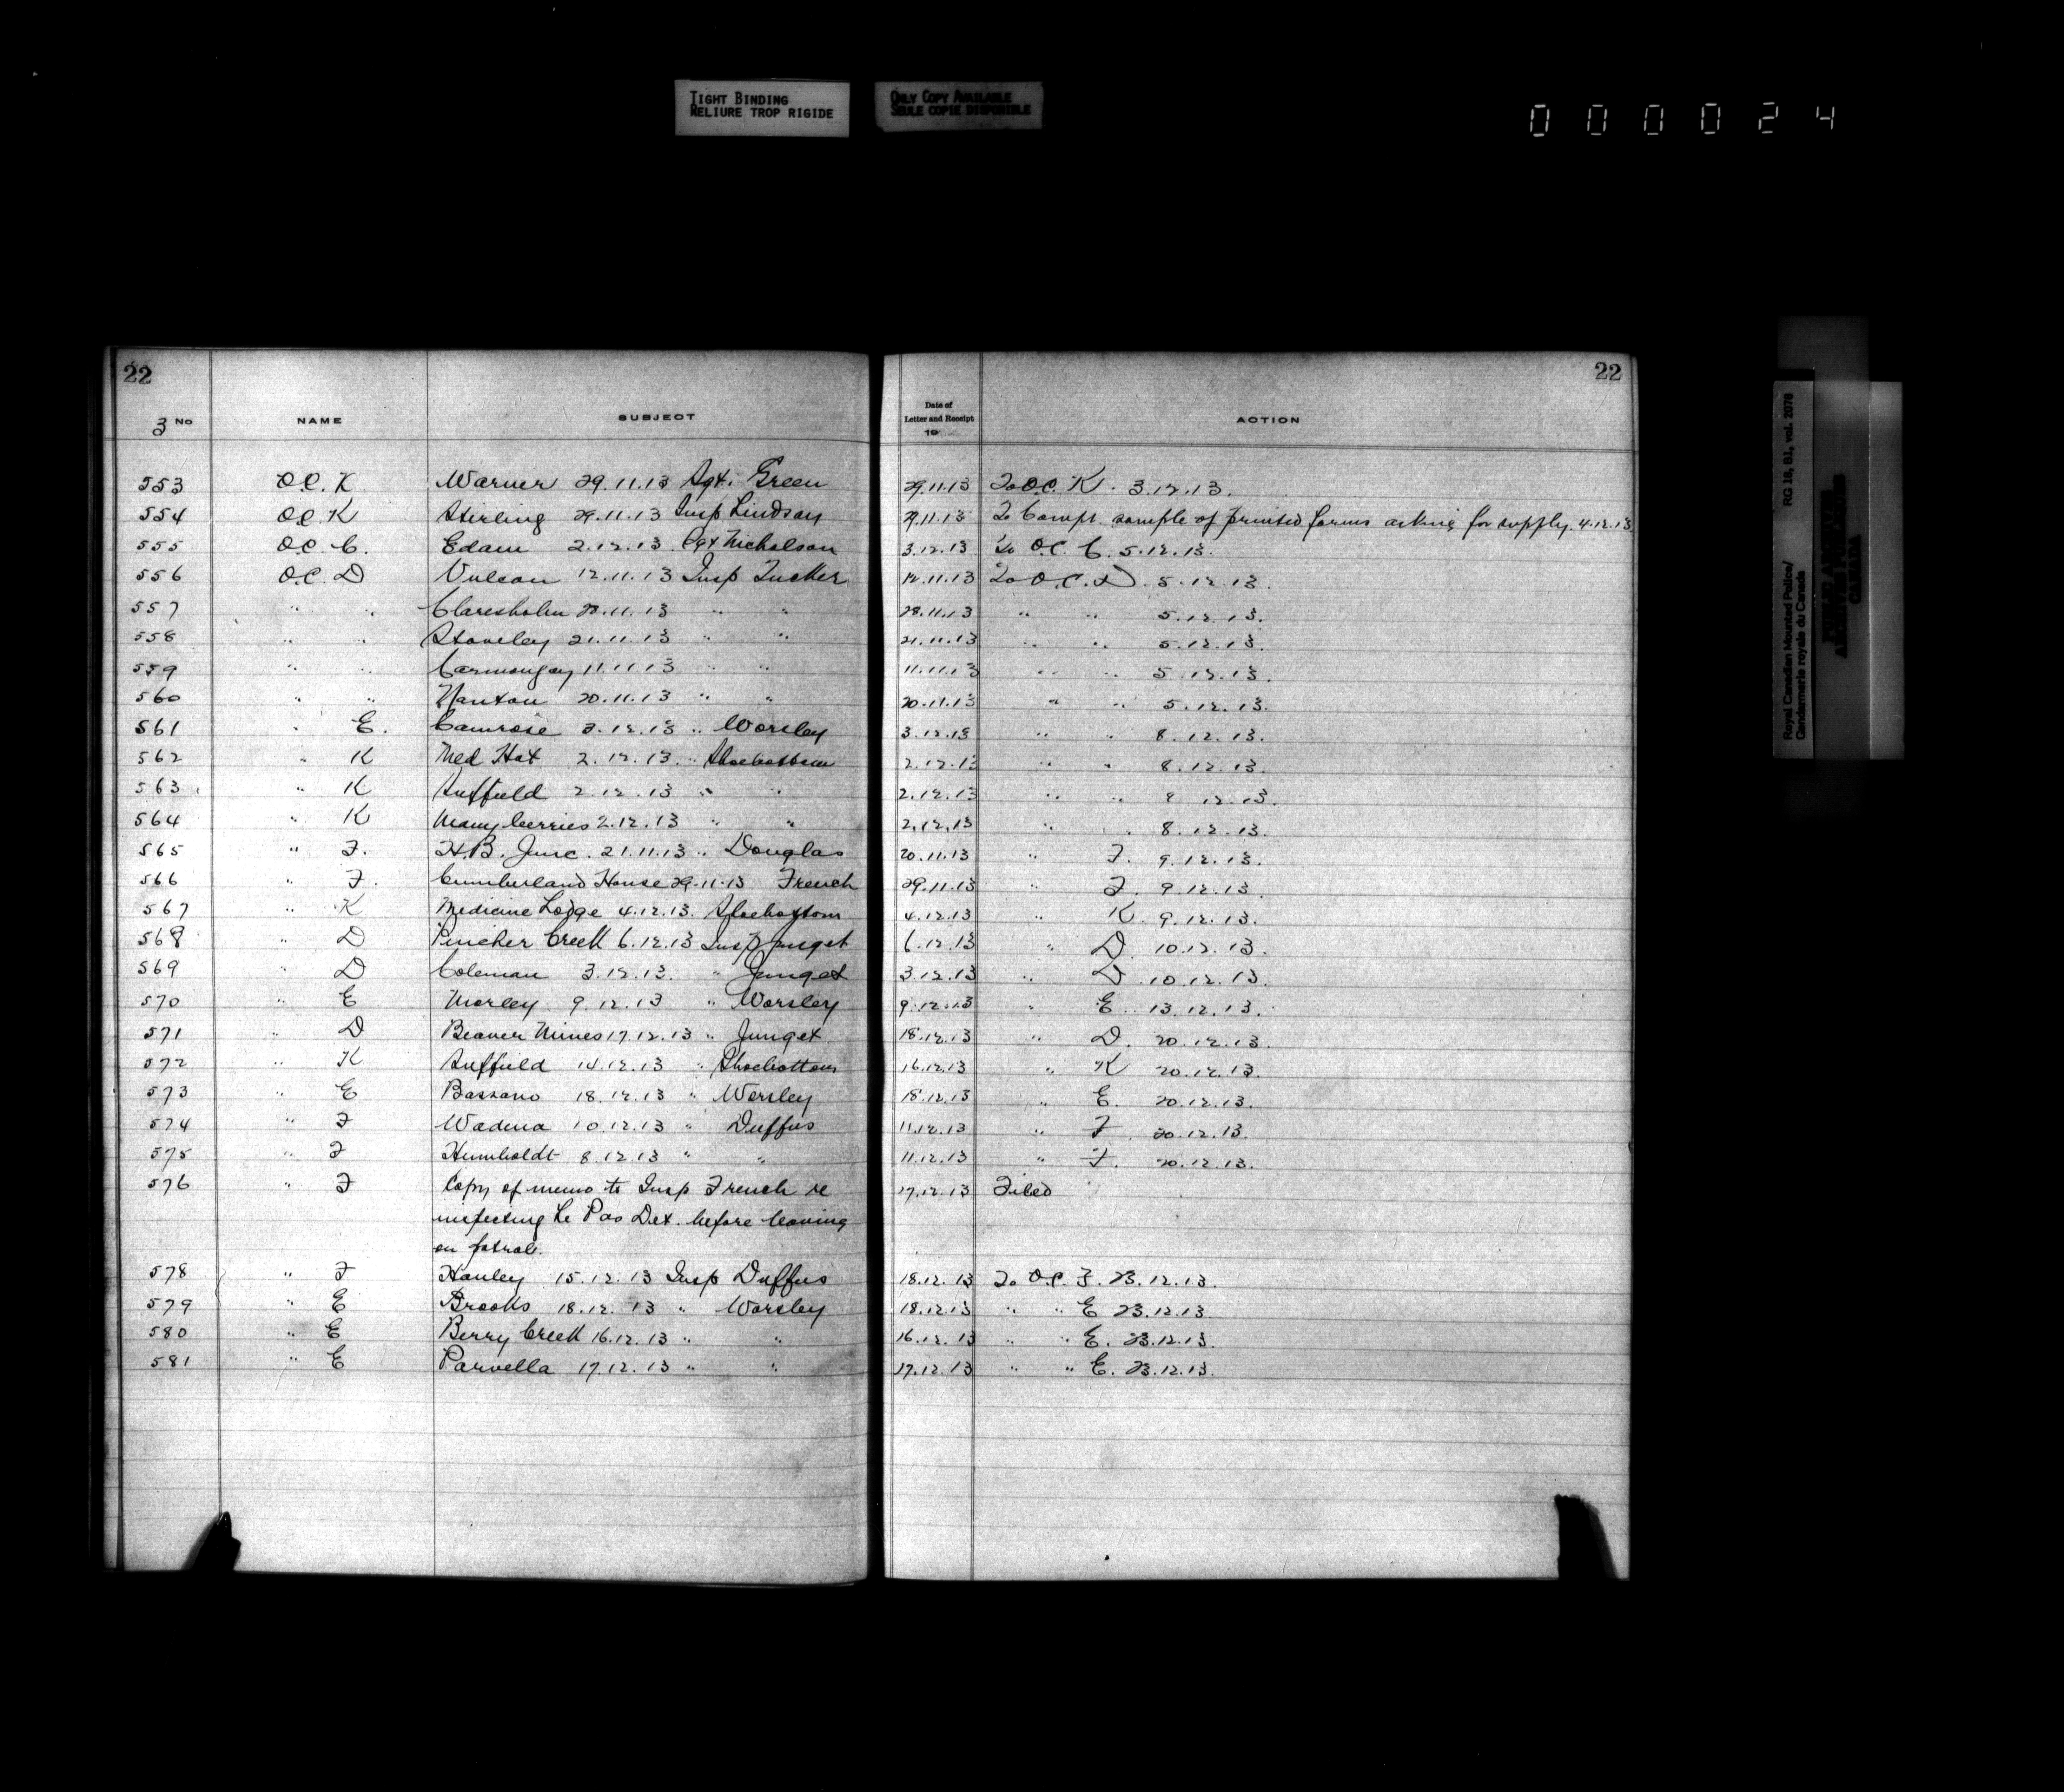 TIGHT BINDING
RELIURE TROP RIGIDE
ONLY COPY AVAILABLE
SEULE COPIE DISPONIBLE
000024
22 22
3 No NAME SUBJECT Date of Letter and Receipt 19 ACTION
553 O.C. K Warner 29.11.13 Sgt. Green 29.11.13 To O.C. K. 3.12.13.
554 O.C. K Stirling 29.11.13 Insp Lindsay 29.11.13 To Compt. sample of printed forms asking for supply. 4.12.13
555 O.C. C. Edam 2.12.13. Sgt Nicholson 3.12.13 To O.C. C. 5.12.13.
556 O.C. D Vulcan 12.11.13 Insp Tucker 12.11.13 To O.C. D. 5.12.13.
557 " " Claresholm 28.11.13 " " 28.11.13 " " 5.12.13.
558 " " Staveley 21.11.13 " " 21.11.13 " " 5.12.13.
559 " " Carmangay 11.11.13 " " 11.11.13 " " 5.12.13.
560 " " Nanton 20.11.13 " " 20.11.13 " " 5.12.13.
561 " E. Camrose 3.12.13 " Worsley 3.12.13 " " 8.12.13.
562 " K Med Hat 2.12.13. " Shoebottom 2.12.13 " " 8.12.13.
563 " K Suffield 2.12.13 " " 2.12.13 " " 8.12.13.
564 " K Manyberries 2.12.13 " " 2.12.13 " " 8.12.13.
565 " F. H.B. Junc. 21.11.13 " Douglas 20.11.13 " F. 9.12.13.
566 " F. Cumberland House 29.11.13 French 29.11.13 " F. 9.12.13
567 " K Medicine Lodge 4.12.13. Shoebottom 4.12.13 " K. 9.12.13.
568 " D Pincher Creek 6.12.13 Insp Junget 6.12.13 " D. 10.12.13.
569 " D Coleman 3.12.13. " Junget 3.12.13 " D. 10.12.13.
570 " E Morley 9.12.13 " Worsley 9.12.13 " E. 13.12.13.
571 " D Beaver Mines 17.12.13 " Junget 18.12.13 " D. 20.12.13.
572 " K Suffield 14.12.13 " Shoebottom 16.12.13 " K 20.12.13.
573 " E Bassano 18.12.13 " Worsley 18.12.13 " E. 20.12.13.
574 " F Wadena 10.12.13 " Duffus 11.12.13 " F. 20.12.13.
575 " F Humboldt 8.12.13 " " 11.12.13 " F. 20.12.13.
576 " F Copy of memo to Insp French re 17.12.13 Filed
inspecting Le Pas Det. before leaving
on patrol.
578 " F Hanley 15.12.13 Insp Duffus 18.12.13 To O.C. F. 23.12.13.
579 " E Brooks 18.12.13 " Worsley 18.12.13 " " E 23.12.13.
580 " E Berry Creek 16.12.13 " " 16.12.13 " " E. 23.12.13.
581 " E Parvella 17.12.13 " " 17.12.13 " " E. 23.12.13.
Royal Canadian Mounted Police/
Gendarmerie royale du Canada
RG 18, B1, vol. 2078
PUBLIC ARCHIVES
ARCHIVES PUBLIQUES
CANADA